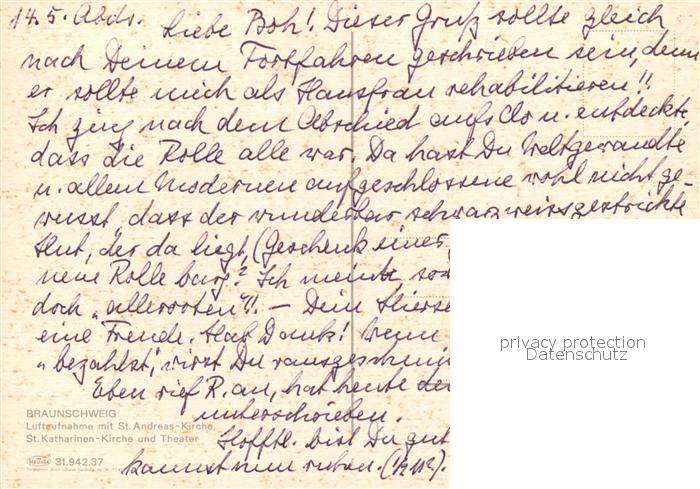 14.5. Abds. Liebe Boh! Dieser Gruß sollte gleich
nach Deinem Fortfahren geschrieben sein, denn
er sollte mich als Hausfrau rehabilitieren!!
Ich ging nach dem Abschied aufs Clo u. entdeckte,
dass die Rolle alle war. Da hast Du Weltgewandte
u. allem Modernen aufgeschlossene wohl nicht ge-
wusst, dass der wunderbar schwarzweissgestrickte
Hut, der da liegt, (Geschenk einer
neue Rolle barg? Ich meinte,
doch „allerorten"!! – Dein Hierse
eine Freude. Hab Dank! Wenn
„bezahlst", wirst Du rausgeschmi
Eben rief R. an, hat heute
unterschrieben.
Hofftl. bist Du gut
kannst nun ruhen. (1/2 11h).
privacy protection
Datenschutz
BRAUNSCHWEIG
Luftaufnahme mit St. Andreas-Kirche,
St. Katharinen-Kirche und Theater
Krüger 31.942.37